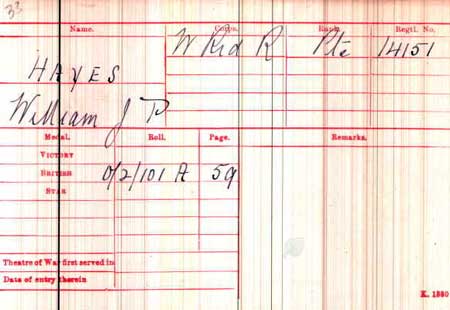 33
Name. Corps. Rank. Regtl. No.
W Rid R Pte 14151
HAYES
William J P
Medal. Roll. Page. Remarks.
VICTORY
BRITISH O/2/101 A 59
STAR
Theatre of War first served in
Date of entry therein
K. 1380